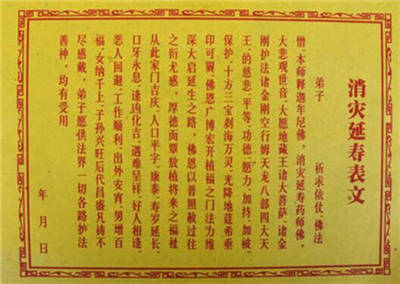 消灾延寿表文
弟子 祈求依仗、佛法
僧、本师释迦牟尼佛，消灾延寿药师佛，
大悲观世音、大愿地藏王诸大菩萨、诸金
刚护法诸金刚空行姆天龙八部四大天
王、的慈悲、平等、功德、愿力、加持、加被、
保护、十方三宝刹海万灵、光降地兹希垂
印可翼、佛恩广博宏开植福之门法力维
深大启延生之路，佛恩以普照赦过往
之衍尤惑，厚德而覃敷植将来之福祉
从此家门吉庆、人口平字、康泰、寿岁延长、
口牙永息、逢凶化吉、遇难呈祥、好人相逢、
恶人回避、工作顺利、出外安宵、男增百
福、女纳千上、子孙兴旺后代昌盛凡祷不
尽感戴、弟子愿供法界一切各路护法
善神、均有受用
年 月 日